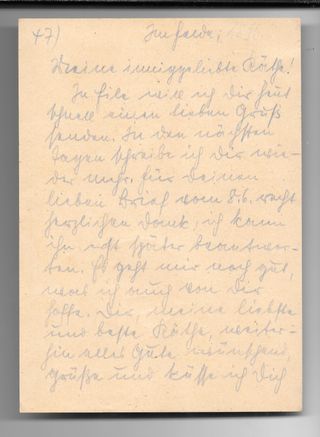 47) Im Felde,
Meine inniggeliebte Käthe!
In Eile will ich dir heut
schnell einen lieben Gruß
senden. In den nächsten
Tagen schreibe ich Dir wie-
der mehr. Für deinen
lieben Brief vom 8.6. recht
herzlichen Dank, ich kann
ihn erst später beantwor-
ten. Es geht mir noch gut,
was ich auch von Dir
hoffe. Dir, meine liebste
und beste Käthe, weiter-
hin alles Gute wünschend,
grüße und küsse ich Dich